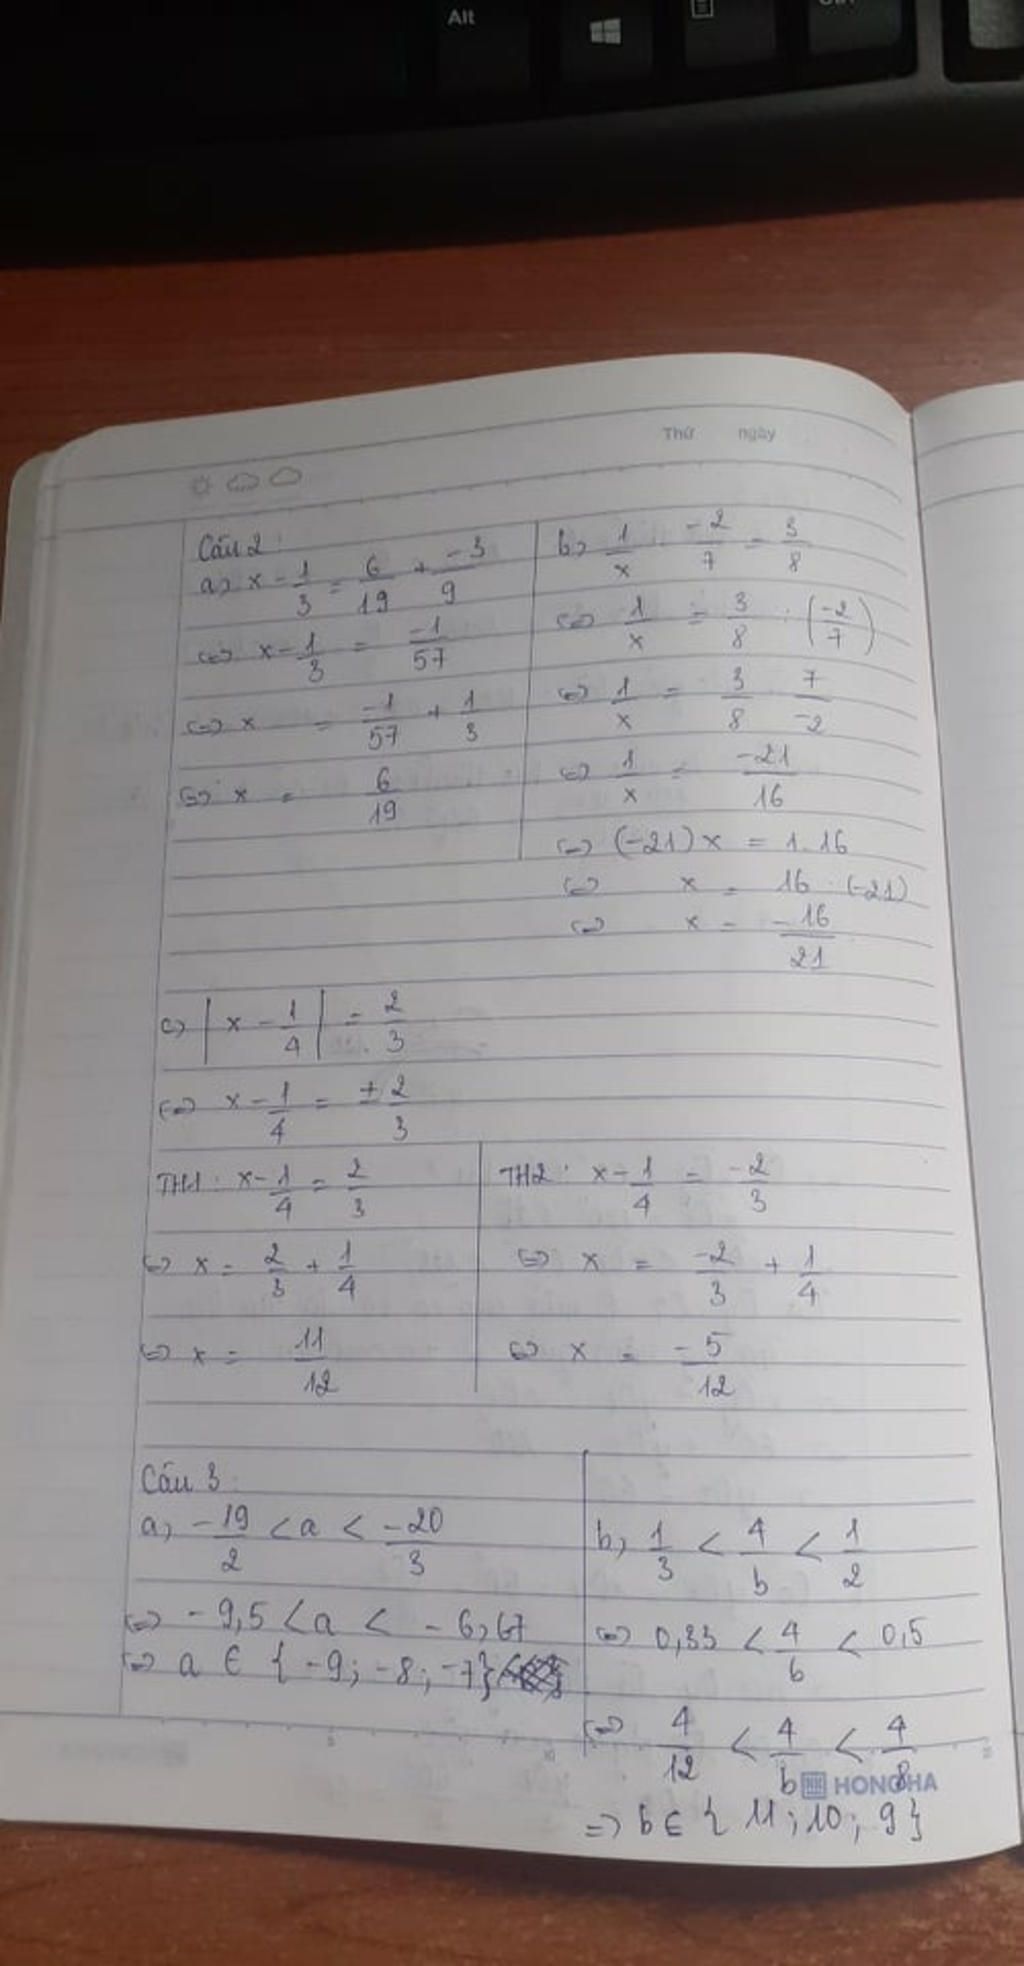 Alt
Thứ ngày
Câu 2:
a) x - 1/3 = 6/19 + -3/9
<=> x - 1/3 = -1/57
<=> x = -1/57 + 1/3
<=> x = 6/19
b) 1/x . -2/7 = 3/8
<=> 1/x = 3/8 : (-2/7)
<=> 1/x = 3/8 . 7/-2
<=> 1/x = -21/16
<=> (-21)x = 1.16
<=> x = 16 : (-21)
<=> x = -16/21
c) |x - 1/4| = 2/3
<=> x - 1/4 = ± 2/3
TH1: x - 1/4 = 2/3
<=> x = 2/3 + 1/4
<=> x = 11/12
TH2: x - 1/4 = -2/3
<=> x = -2/3 + 1/4
<=> x = -5/12
Câu 3:
a, -19/2 < a < -20/3
<=> -9,5 < a < -6,67
<=> a ∈ {-9; -8; -7}
b, 1/3 < 4/b < 1/2
<=> 0,33 < 4/b < 0,5
<=> 4/12 < 4/b < 4/8
=> b ∈ {11; 10; 9}
HONG HA